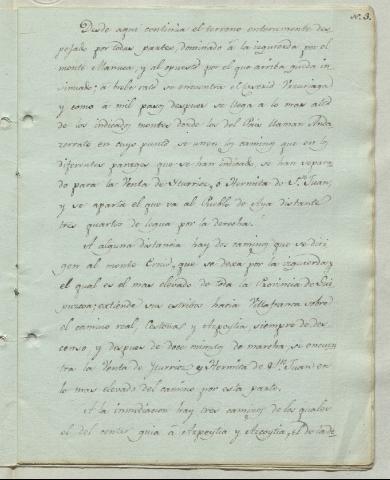 Nº. 3.
Desde aqui continúa el terreno enteramente des
pejado por todas partes, dominado à la izquierda por el
monte y al opuesto por el que arriba queda in
sinuado; à breve rato se encuentra el
y como à mil pasos despues se llega à lo mas alto
de los indicados montes donde los del Pais llaman Anda
zarrate en cuyo punto se unen los caminos que en los
diferentes parages que se han indicado se han separa
do para la Venta de Yturrioz, o Hermita de Sn. Juan;
y se aparta el que va al Pueblo de Aya distante
tres quartos de legua por la derecha.
A alguna distancia hay dos caminos que se diri
gen al monte Ernio, que se dexa por la izquierda y
el qual es el mas elevado de toda la Provincia de Gui
puzcoa; extiende sus estribos hacia Villafranca sobre
el camino real, Cestona, y Azpeytia, siempre de des
censo y despues de doce minutos de marcha, se encuen
tra la Venta de Yturrioz y Hermita de Sn. Juan en
lo mas elevado del camino por esta parte.
A la inmediacion hay tres caminos de los quales
el del center guia à Azpeytia y Azcoytia, el de la de